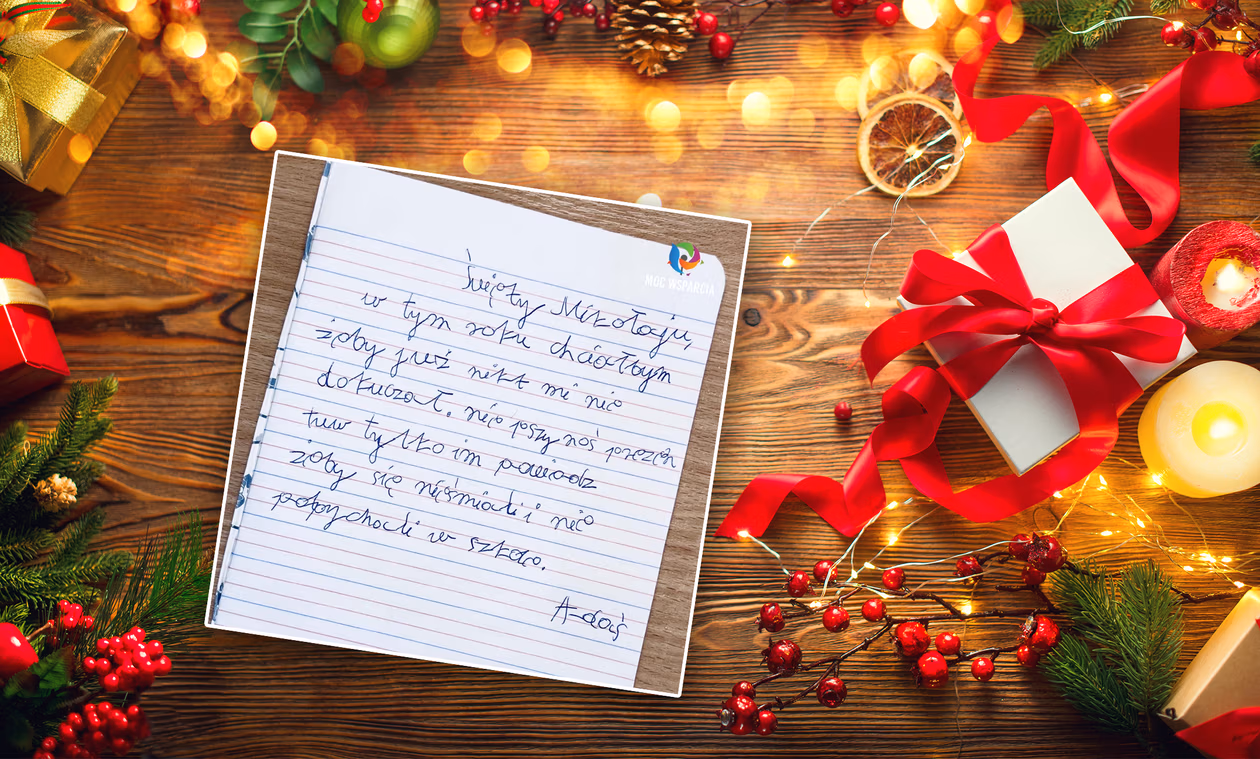 MOC WSPARCIA
Święty Mikołaju,
w tym roku chciałbym
żeby już nikt mi nie
dokuczał. nie przynoś prezen
tuw tylko im powiedz
żeby się nieśmiali i nie
popychali w szkole.
Adaś